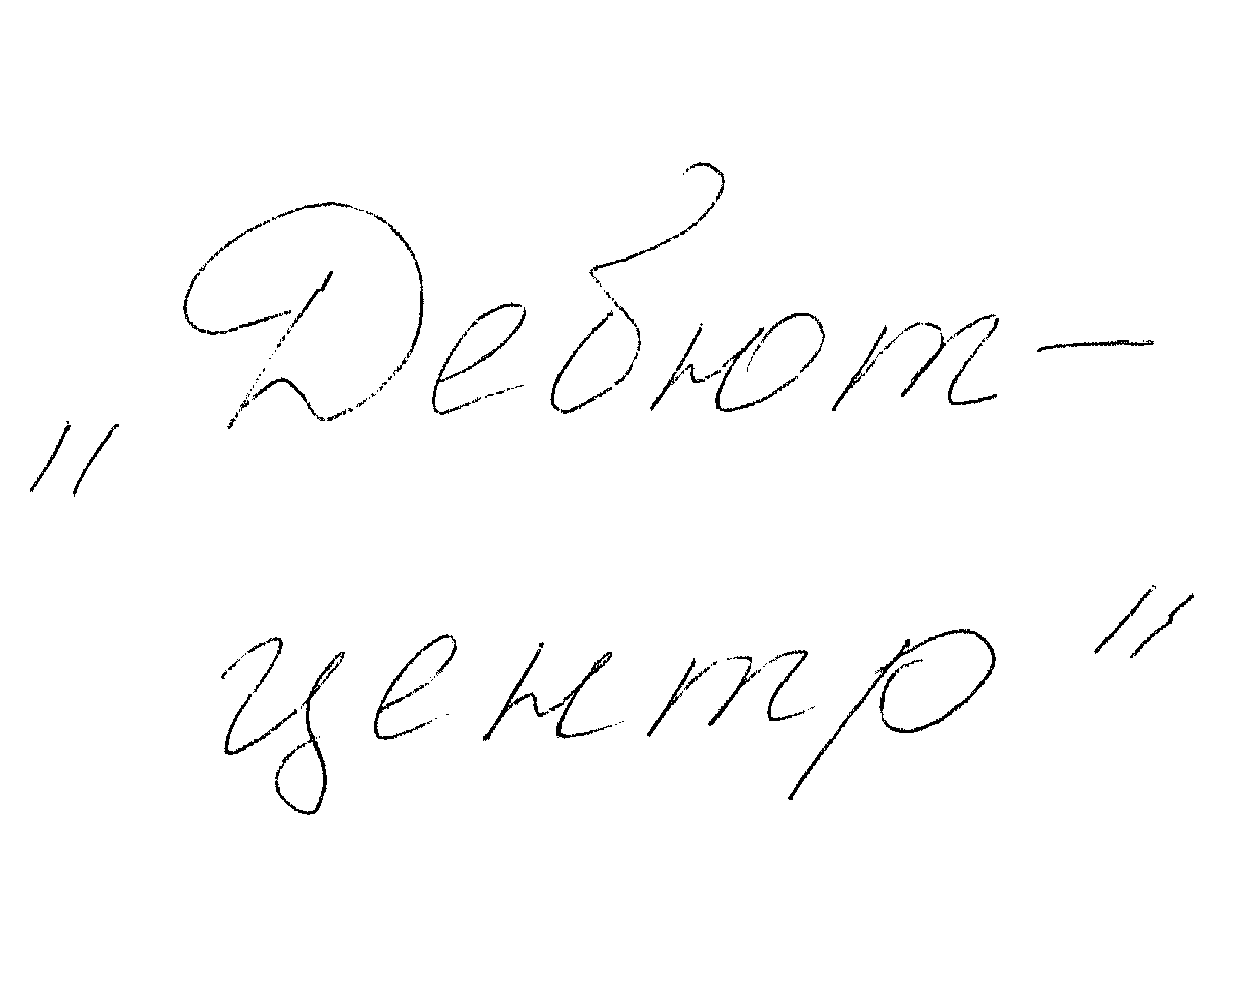 „Дебют-
центр"